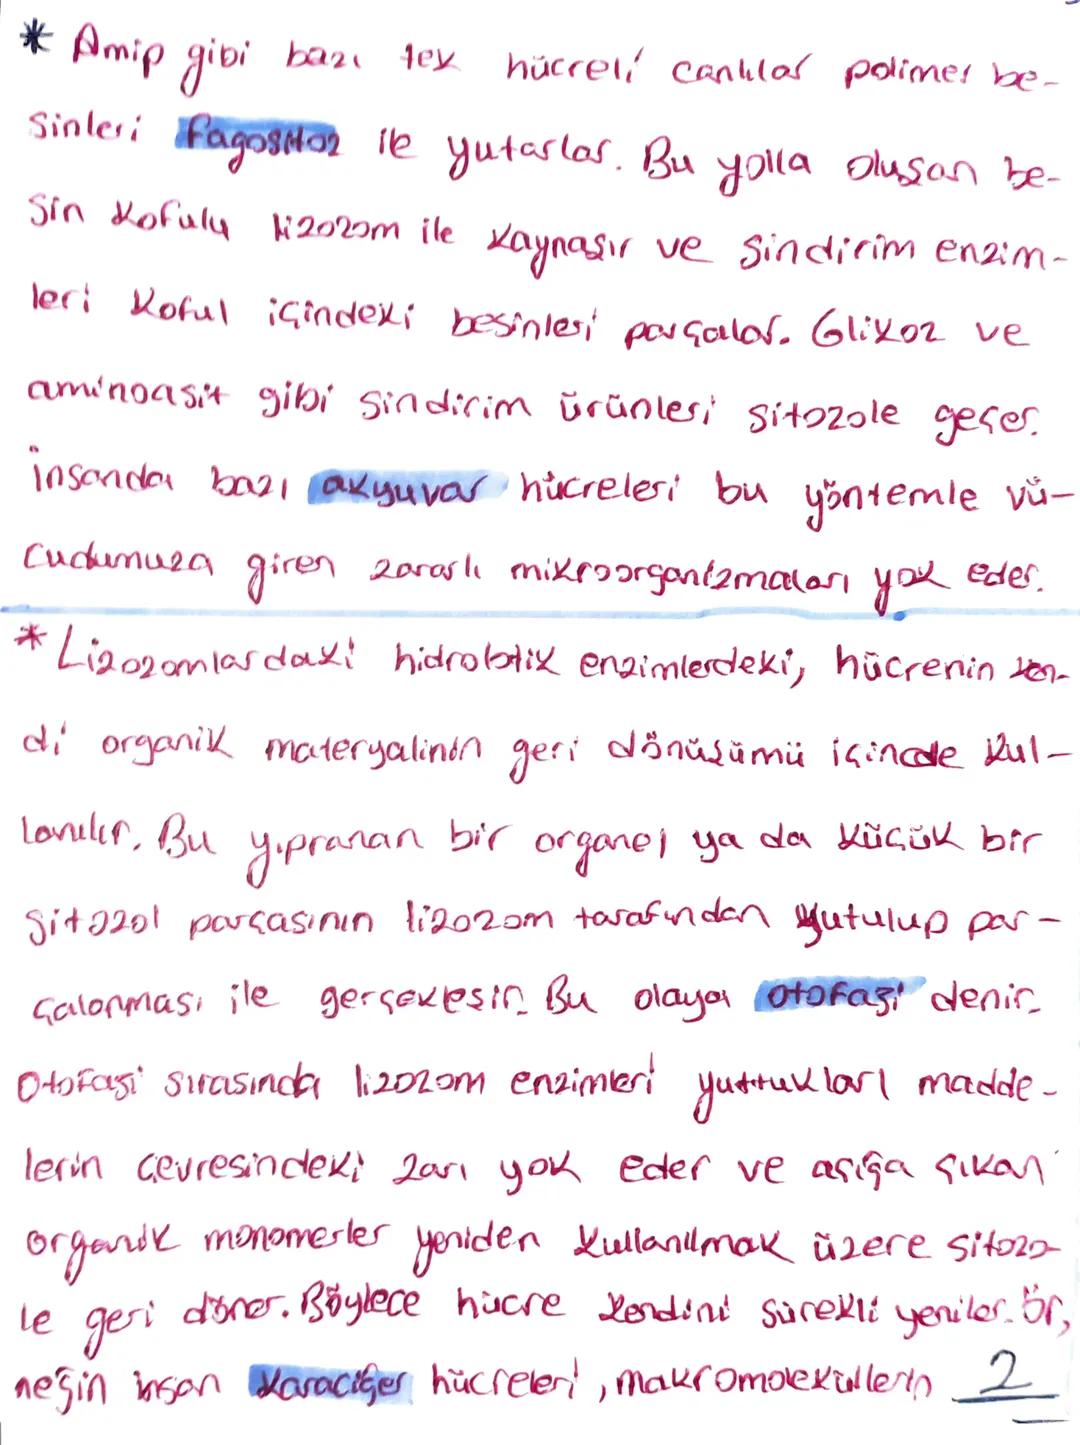 * Amip gibi bazı tek hücreli canlılar polimer be-
sinleri fagositoz ile yutarlar. Bu yolla oluşan be-
sin kofulu lizozom ile kaynaşır ve sindirim enzim-
leri koful içindeki besinleri parçalar. Glikoz ve
aminoasit gibi sindirim ürünleri sitozole geçer.
İnsanda bazı akyuvar hücreleri bu yöntemle vü-
cudumuza giren zararlı mikroorganizmaları yok eder.
* Lizozomlardaki hidrolitik enzimlerdeki, hücrenin ken-
di organik materyalinin geri dönüşümü içinde kul-
lanılır. Bu yıpranan bir organel ya da küçük bir
sitozol parçasının lizozom tarafından yutulup par-
çalanması ile gerçekleşir. Bu olaya otofaji denir.
Otofaji sırasında lizozom enzimleri yuttukları madde-
lerin çevresindeki zarı yok eder ve açığa çıkan
organik monomerler yeniden kullanılmak üzere sitozo-
le geri döner. Böylece hücre kendini sürekli yeniler. Ör,
neğin insan karaciğer hücreleri, makromoleküllerin 2